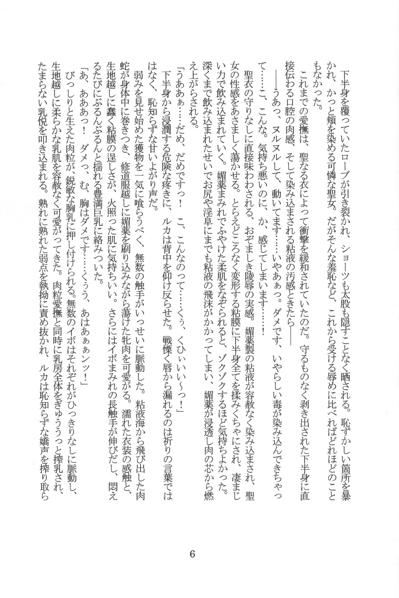 下半身を覆っていたローブが引き裂かれ、ショーツも太股も隠すことなく晒される。恥ずかしい箇所を暴
かれ、かっと頬を染める可憐な聖女。だがそんな羞恥など、これから受ける辱めに比べればどれほどのこと
もなかった。
　これまでの愛撫は、聖なる衣によって衝撃を緩和されていたのだ。守るものなく剥き出された下半身に直
接伝わる口腔の肉感、そして染み込まされる粘液の汚感ときたら――
「うあっ、ヌルヌルして、動いてます……いやあぁっ。ダメです、いやらしい毒が染み込んできちゃっ
て……こ、こんな、気持ち悪いのに、か、感じてしまいます……！」
　聖衣の守りなしに直接味わわされる、おぞましき陵辱の実感。媚薬製の粘液が容赦なく染み込まされ、聖
女の性感をあさましく蕩かせる。とらえどころなく変形する粘膜に下半身全てを揉みくちゃにされ、凄まじ
い力で飲み込まれていく。媚薬まみれでふやけた柔肌をなぞられると、ゾクゾクするほど気持ちよかった。
深くまで飲み込まれたせいでお尻や淫唇にまでも粘液の飛沫がかかってしまい、媚薬が浸透し肉の芯から燃
え上がらされる。
「うああぁ……だめ、だめですっ！　こ、こんなのって……くぅぅ、くひぃいい～っ！」
　下半身から浸潤する危険な疼きに、ルカは背中を仰け反らせた。戦慄く唇から漏れるのは祈りの言葉では
はなく、恥知らずな甘い上がり声だ。
　弱みを見せ始めた獲物を一気に喰らうべく、無数の触手がいっせいに脈動した。粘液海から飛び出した肉
蛇が身体中に巻きつき、修道服越しに媚薬を刷り込みながら蕩けた牝肉を可愛がる。濡れた衣装の感触と、
生地越しに蠢く粘膜の逞しさが、火照った肌に気持ちいい。さらにはイボまみれの長触手が伸びだし、悶え
るたびにぶるんぶるんと揺れる豊満巨乳に絡みついた。
「あ、あああっ！　ダメっ、む、胸はダメです……くぅぅ、あはあぁぁンッ！」
　びっしりと生えた肉粒が、鋭敏な胸乳に押し付けられる。無数のイボはそれぞれがひっきりなしに脈動し、
生地越しに柔らかな感触を容赦なく可愛がってきた。肉粒愛撫と同時に乳房全体をぎゅうぅっと搾乳され、
たまらない乳悦を叩き込まれる。熟れに熟れた弱点を執拗に責め抜かれ、ルカは恥知らずな嬌声を搾り取ら
6